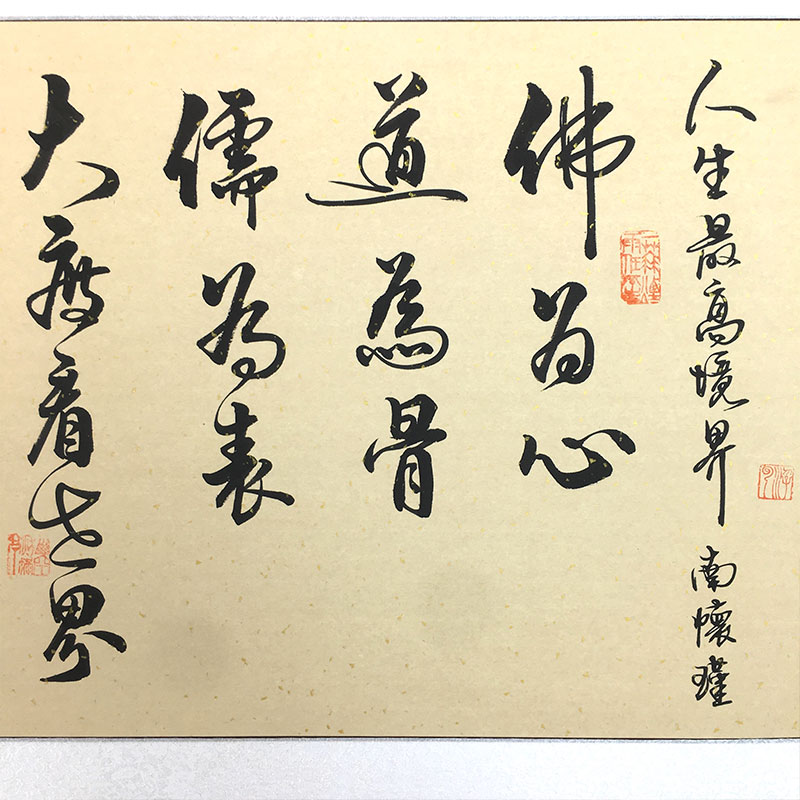 人生最高境界 南懷瑾
佛為心
道為骨
儒為表
大度看世界